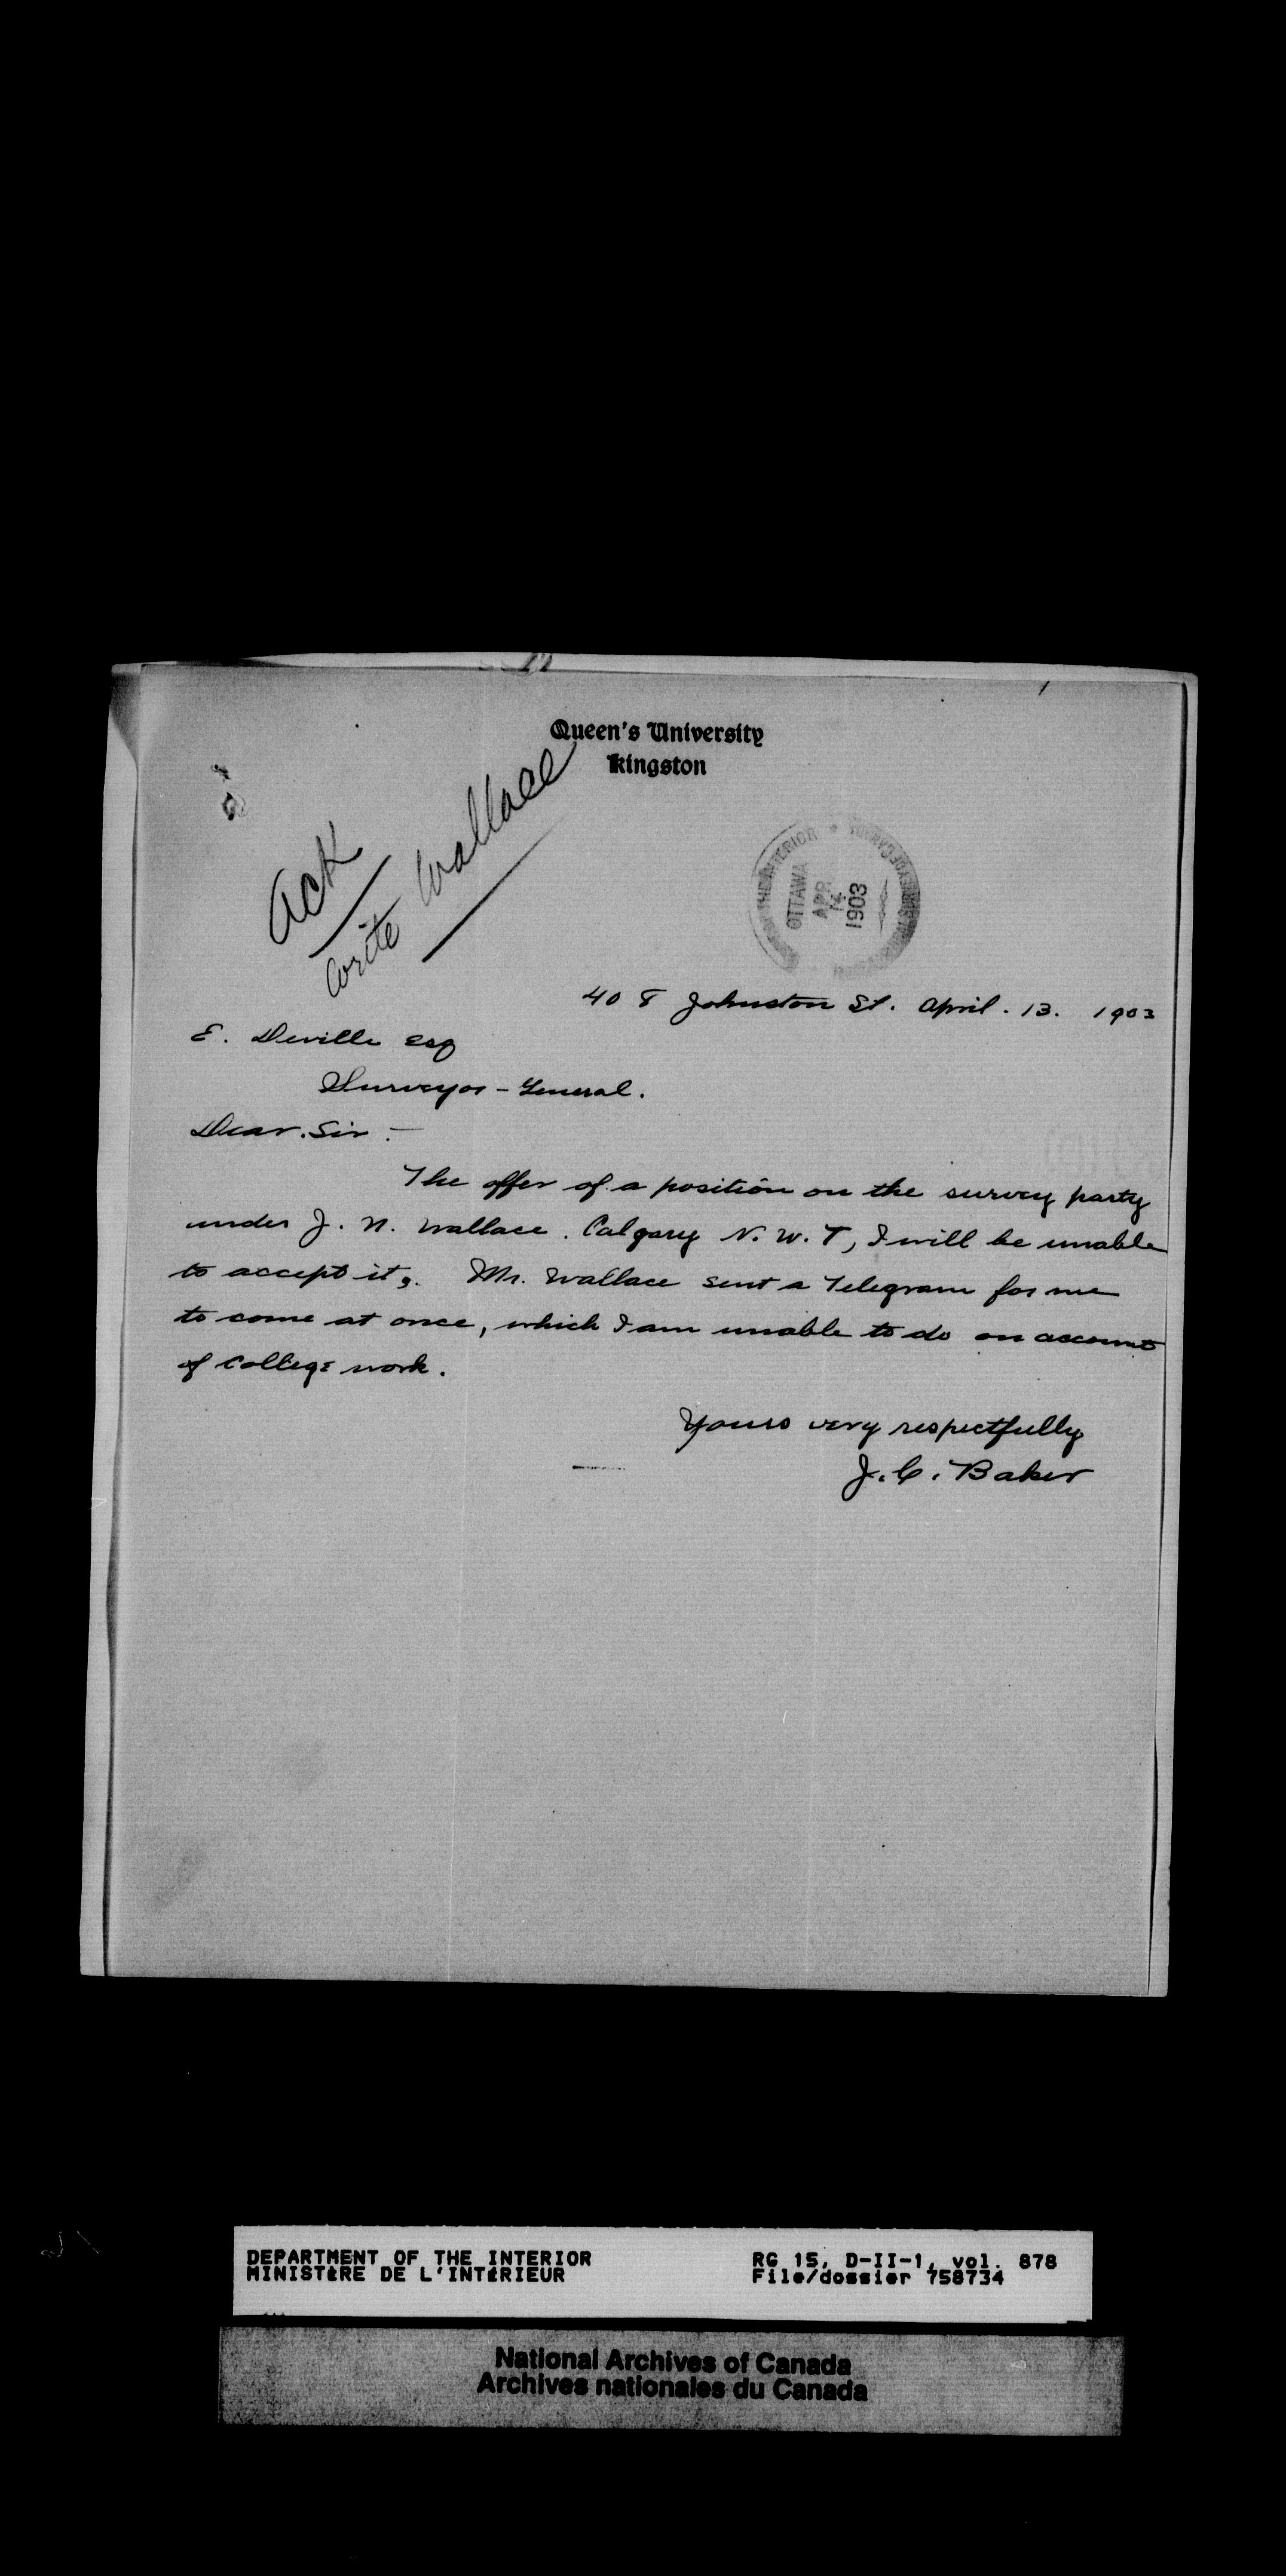 Queen's University
Kingston
Ack
write Wallace
THE INTERIOR
OTTAWA
APR
14
1903
408 Johnston St. April. 13. 1903
E. Deville Esq
Surveyor-General.
Dear. Sir :-
The offer of a position on the survey party
under J. N. Wallace. Calgary N. W. T, I will be unable
to accept it,. Mr. Wallace sent a Telegram for me
to come at once, which I am unable to do on account
of College work.
Yours very respectfully
J. C. Baker
DEPARTMENT OF THE INTERIOR
MINISTÈRE DE L'INTÉRIEUR
RG 15, D-II-1, vol. 878
File/dossier 758734
National Archives of Canada
Archives nationales du Canada